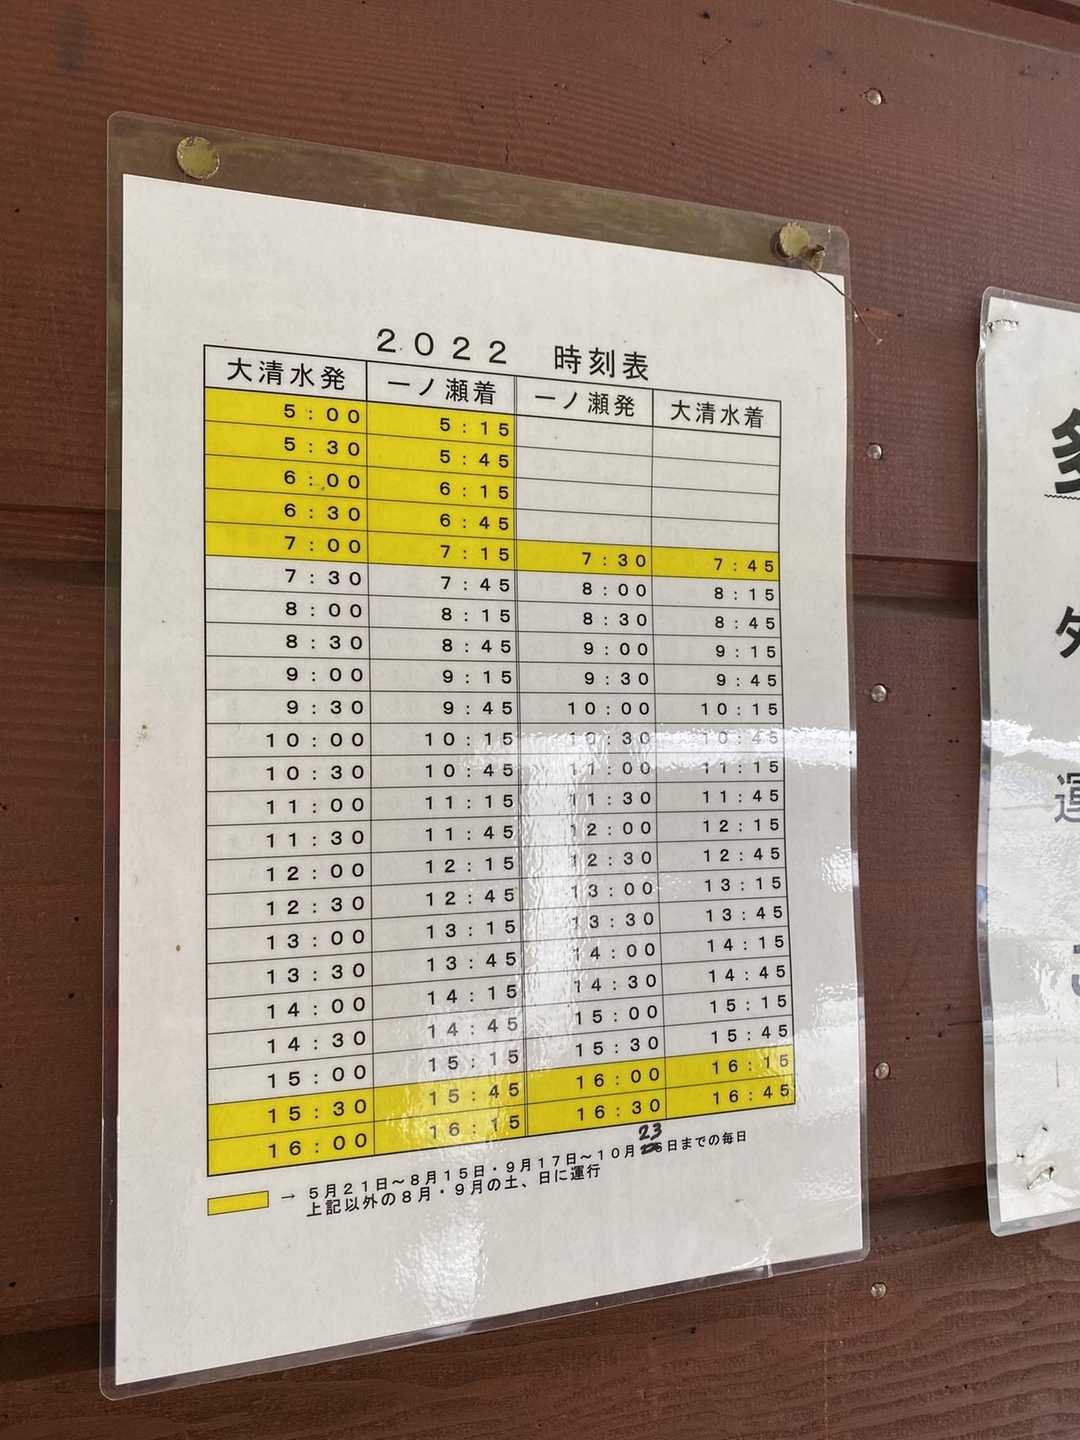 ２０２２　時刻表
大清水発　一ノ瀬着　一ノ瀬発　大清水着
５：００　５：１５
５：３０　５：４５
６：００　６：１５
６：３０　６：４５
７：００　７：１５　７：３０　７：４５
７：３０　７：４５　８：００　８：１５
８：００　８：１５　８：３０　８：４５
８：３０　８：４５　９：００　９：１５
９：００　９：１５　９：３０　９：４５
９：３０　９：４５　１０：００　１０：１５
１０：００　１０：１５　１０：３０　１０：４５
１０：３０　１０：４５　１１：００　１１：１５
１１：００　１１：１５　１１：３０　１１：４５
１１：３０　１１：４５　１２：００　１２：１５
１２：００　１２：１５　１２：３０　１２：４５
１２：３０　１２：４５　１３：００　１３：１５
１３：００　１３：１５　１３：３０　１３：４５
１３：３０　１３：４５　１４：００　１４：１５
１４：００　１４：１５　１４：３０　１４：４５
１４：３０　１４：４５　１５：００　１５：１５
１５：００　１５：１５　１５：３０　１５：４５
１５：３０　１５：４５　１６：００　１６：１５
１６：００　１６：１５　１６：３０　１６：４５
→　５月２１日～８月１５日・９月１７日～１０月23日までの毎日
上記以外の８月・９月の土、日に運行
運